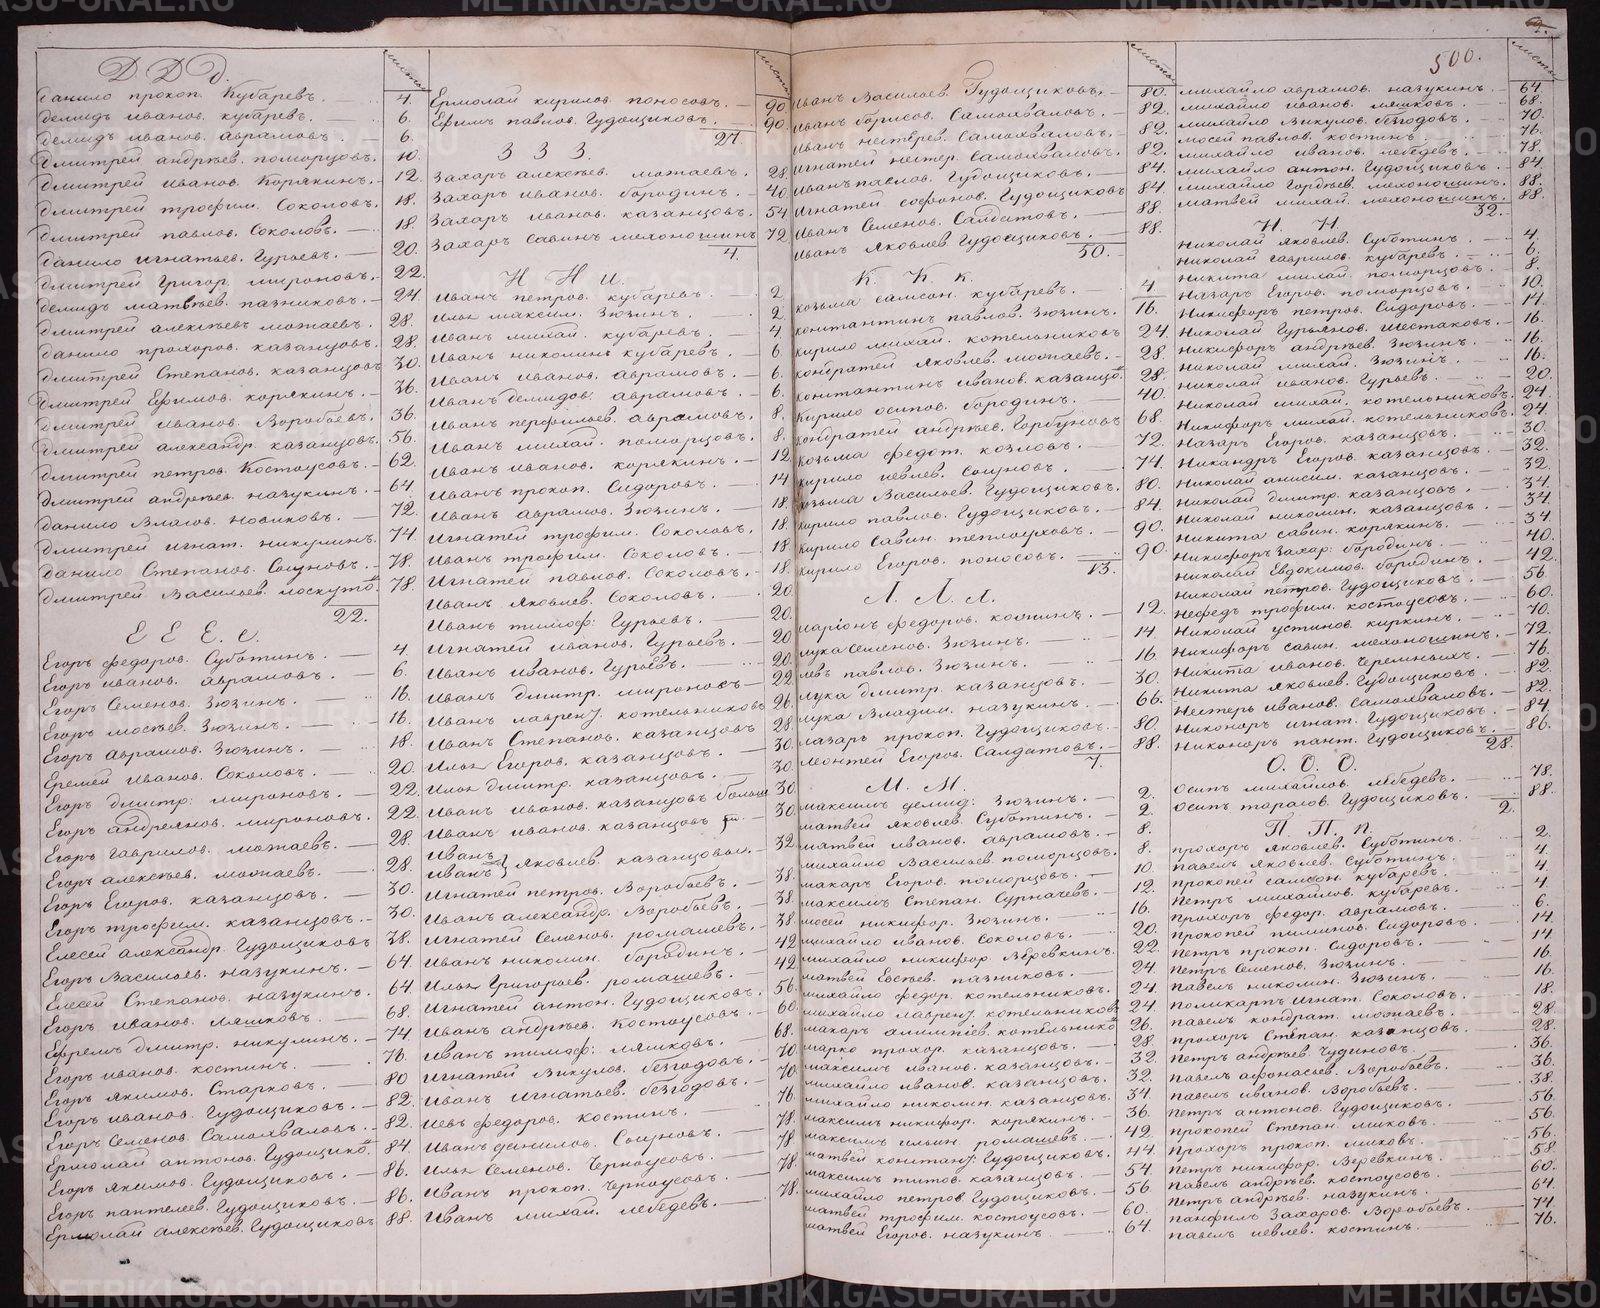 Д Д Д.
листы
Данило прокоп. Кубаревъ. 4.
Демидъ иванов. кубаревъ. 6.
демидъ иванов. аврамовъ 6.
Дмитрей андрѣев. поморцовъ. 10.
Дмитрей иванов. Корякинъ. 12.
Дмитрей трофим. Соколовъ. 18.
Дмитрей павлов. Соколовъ. 18.
Данило игнатьев. Гурьевъ. 20.
Дмитрей Григор. мироновъ. 22.
Демидъ матвѣев. пазниковъ. 24.
Дмитрей алексѣевъ мотаевъ. 28.
данило прохоров. казанцовъ. 28.
Дмитрей Степанов. казанцовъ 30.
Дмитрей Ефимов. корякинъ. 36.
Дмитрей иванов. Воробьевъ. 36.
Дмитрей александр. казанцовъ. 56.
Дмитрей петров. Костоусовъ. 62.
Дмитрей андрѣев. назукинъ. 64.
данило Власов. новиковъ. 72.
Дмитрей игнат. никулинъ. 74.
данило Степанов. Соуновъ. 78.
Дмитрей Васильев. лоскуто 78.
22.
Е Е Е. е.
Егоръ федоров. Суботинъ. 4.
Егоръ иванов. аврамовъ. 6.
Егоръ Семенов. Зюзинъ. 16.
Егоръ мосѣев. Зюзинъ. 16.
Егоръ аврамов. Зюзинъ. 18.
Еремей иванов. Соколовъ. 20.
Егоръ дмитр: мироновъ. 22.
Егоръ андреянов. мироновъ. 22.
Егоръ гаврилов. мотаевъ. 28.
Егоръ алексѣев. мотаевъ. 28.
Егоръ Егоров. казанцовъ. 30.
Егоръ трофим. казанцовъ. 30.
Елесей александр. Гудощиковъ 38.
Егоръ Васильев. назукинъ. 64
Елесей Степанов. назукинъ. 64
Егоръ иванов. ляшковъ. 68.
Ефремъ дмитр. никулинъ. 74
Егоръ иванов. костинъ. 76.
Егоръ якимов. Старковъ. 80
Егоръ иванов. Гудощиковъ. 82.
Егоръ Семенов. Самохваловъ. 82.
Ермолай антонов. Гудощико 84
Егоръ якимов. Гудощиковъ. 86.
Егоръ пантелеев. Гудощиковъ. 86.
Ермолай алексѣев. Гудощиковъ 88.
листы
Ермолай кирилов. поносовъ. 90
Ефимъ павлов. Гудощиковъ. 90.
27.
З З З.
Захаръ алексѣев. мотаевъ. 28
Захаръ иванов. бородинъ. 40
Захаръ иванов. казанцовъ. 54
Захаръ савин. мехоношинъ 72
4.
И И И.
Иванъ петров. кубаревъ. 2.
Илья максим. Зюзинъ. 2.
Иванъ михай. кубаревъ. 4.
Иванъ николин. кубаревъ. 6.
Иванъ иванов. аврамовъ. 6.
Иванъ демидов. аврамовъ. 6.
Иванъ перфильев. аврамовъ. 8.
Иванъ михай. поморцовъ. 8.
Иванъ иванов. корякинъ. 12.
Иванъ прокоп. Сидоровъ. 14
Иванъ аврамов. Зюзинъ. 18.
Игнатей трофим. Соколовъ. 18.
Иванъ трофим. Соколовъ. 18.
Игнатей павлов. Соколовъ. 18.
Иванъ яковлев. Соколовъ. 20.
Иванъ тимоф: Гурьевъ. 20.
Игнатей иванов. Гурьевъ. 20
Иванъ иванов. Гурьевъ. 20.
Иванъ дмитр. мироновъ 22.
Иванъ лаврен. котельниковъ 26.
Иванъ Степанов. казанцовъ 28
Илья Егоров. казанцовъ. 30.
Илья дмитр. казанцовъ. 30
Иванъ иванов. казанцовъ больш 30.
Иванъ иванов. казанцовъ 30.
Иванъ
Иванъ } яковлев. казанцовы. 32
Игнатей петров. Воробьевъ. 38.
Иванъ александр. Воробьевъ. 38.
Игнатей Семенов. ромашевъ. 38.
Иванъ николин. бородинъ. 42
Илья Григорьев. ромашевъ. 42
Игнатей антон. Гудощиковъ. 56.
Иванъ андрѣев. Костоусовъ. 60.
Иванъ тимоф: ляшковъ. 68.
Игнатей Викулов. безгодовъ. 70
Иванъ игнатьев. безгодовъ. 70.
Иевъ федоров. костинъ. 76.
Иванъ данилов. Соуновъ. 78.
Илья Семенов. Черноусовъ. 78.
Иванъ прокоп. Черноусовъ. 78.
Иванъ михай. лебедевъ. 78.
500.
листы
Иванъ Васильев. Гудощиковъ. 80.
Иванъ борисов. Самохваловъ. 82.
Иванъ нестерев. Самохваловъ. 82.
Игнатей нестер. Самохваловъ. 82.
Иванъ павлов. Гудощиковъ. 84.
Игнатей софонов. Гудощиковъ 84.
Иванъ Семенов. Салдатовъ. 88.
Иванъ яковлев. Гудощиковъ. 88.
50.
К К к.
козьма самсон. кубаревъ. 4
константинъ павлов. Зюзинъ. 16.
кирило михай. котельниковъ 24
кондратей яковлев. мотаевъ. 28.
константинъ иванов. казанцо 28.
Кирило осипов. бородинъ. 40.
кондратей андрѣев. Горбуновъ 68.
козьма федот. козловъ. 72.
кирило иевлев. Соуновъ. 74.
козьма Васильев. Гудощиковъ. 80.
кирило павлов. Гудощиковъ. 84.
кирило Савин. теплоуховъ. 90.
кирило Егоров. поносовъ. 90.
13.
Л. Л Л.
ларіонъ федоров. костинъ. 12.
лука Семенов. Зюзинъ. 14.
левъ павлов. Зюзинъ. 16.
лука дмитр. казанцовъ. 30.
лука Владим. назукинъ. 66.
лазаръ прокоп. Гудощиковъ. 80
леонтей Егоров. Салдатовъ. 88.
7.
М. М.
максимъ демид: Зюзинъ. 2.
матвей яковлев. Суботинъ. 2.
матвей иванов. аврамовъ. 8.
михайло Васильев. поморцовъ. 8.
макаръ Егоров. поморцовъ. 10.
максимъ Степан. Сурначевъ. 12.
мосей никифор. Зюзинъ. 16.
михайло иванов. Соколовъ. 20.
михайло никифор. Веревкинъ. 22.
матвей Евсѣев. пазниковъ. 24.
михайло федор. котельниковъ. 24.
михайло лаврен. котельниковъ 24
макаръ алимпіев. котельнико 26.
марко прохор. казанцовъ. 28.
максимъ иванов. казанцовъ. 32.
михайло иванов. казанцовъ. 32
михайло николин. казанцовъ. 34
максимъ никифор. корякинъ. 36.
максимъ ильин. ромашевъ. 42.
матвей констан: Гудощиковъ. 44.
максимъ титов. казанцовъ. 54.
михайло петров. Гудощиковъ. 56.
матвей трофим. костоусовъ. 60.
матвей Егоров. назукинъ. 64.
листы
михайло аврамов. назукинъ. 64
михайло иванов. ляшковъ. 68.
михайло Викулов. безгодовъ. 70.
мосей павлов. костинъ. 76.
михайло иванов. лебедевъ. 78.
михайло антон. Гудощиковъ. 84.
михайло Гордѣев. мехоношинъ. 88.
матвей михай. мехоношинъ. 88.
32.
Н. Н.
Николай яковлев. Суботинъ. 4.
Николай гаврилов. кубаревъ. 6.
Никита михай. поморцовъ. 8.
Назаръ Егоров. поморцовъ. 10.
Никифоръ петров. Сидоровъ. 14.
Николай Гурьянов. Шестаковъ. 16.
Никифоръ андрѣев. Зюзинъ. 16.
Николай михай. Зюзинъ. 16.
Николай иванов. Гурьевъ. 20.
Николай михай. котельниковъ. 24.
Никифоръ михай. котельниковъ. 24.
Назаръ Егоров. казанцовъ. 30.
Никандръ Егоров. казанцовъ. 32.
Николай анисим. казанцовъ. 32.
Николай дмитр. казанцовъ. 34.
Николай николин. казанцовъ. 34.
Никита савин. корякинъ. 34.
Никифоръ Захар: бородинъ. 40.
Николай Евдокимов. бородинъ. 42.
Николай петров. Гудощиковъ. 56.
Нефедъ трофим. костоусовъ. 60.
Николай устинов. киркинъ. 70.
Никифоръ савин. мехоношинъ. 72.
Никита иванов. Черемныхъ. 76.
Никита яковлев. Гудощиковъ. 82.
Нестеръ иванов. Самохваловъ. 82.
Никоноръ игнат. Гудощиковъ. 84
Никоноръ пант. Гудощиковъ. 86.
28.
О. О. О.
Осипъ михайлов. лебедевъ. 78.
Осипъ тарасов. Гудощиковъ. 88.
2.
П. П. п.
прохоръ яковлев. Суботинъ. 2.
Павелъ яковлев. Суботинъ. 4.
прокопей самсон. кубаревъ. 4.
Петръ михайлов. кубаревъ. 4.
Прохоръ федор. аврамовъ. 6.
прокопей пилипов. Сидоровъ. 14.
Петръ прокоп. Сидоровъ. 14
Петръ Семенов. Зюзинъ. 16.
Павелъ николин. Зюзинъ. 16.
поликарпъ игнат. Соколовъ. 18.
павелъ кондрат. мотаевъ. 28
прохоръ Степан. казанцовъ. 28.
Петръ андрѣев. Чудиновъ. 36.
Павелъ афонасьев. Воробьевъ. 36.
павелъ иванов. Воробьевъ. 38.
Петръ антонов. Гудощиковъ. 56.
прокопей Степан. шиховъ. 56.
Прохоръ прокоп. шиховъ. 56.
Петръ никифор. Веревкинъ. 58.
Павелъ андрѣев. костоусовъ. 60.
Петръ андрѣев. назукинъ. 64.
панфилъ Захаров. Воробьевъ. 74
павелъ иевлев. костинъ. 76.
METRIKI.GASO-URAL.RU